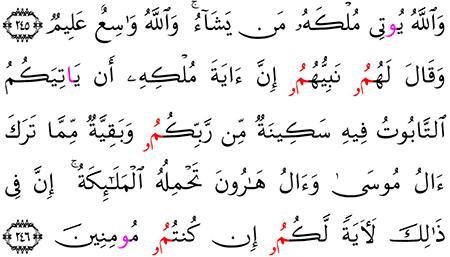 وَاللَّهُ يُوتِى مُلْكَهُۥ مَن يَشَآءُ ۚ وَاللَّهُ وَٰسِعٌ عَلِيمٌ ٢٤٥
وَقَالَ لَهُمُۥ نَبِيُّهُمُۥ إِنَّ ءَايَةَ مُلْكِهِۦ أَن يَاتِيَكُمُ
التَّابُوتُ فِيهِ سَكِينَةٌ مِّن رَّبِّكُمُۥ وَبَقِيَّةٌ مِّمَّا تَرَكَ
ءَالُ مُوسَىٰ وَءَالُ هَٰرُونَ تَحْمِلُهُ الْمَلَٰٓئِكَةُ ۚ إِنَّ فِى
ذَٰلِكَ لَأَيَةً لَّكُمُۥ إِن كُنتُمُۥ مُومِنِينَ ٢٤٦